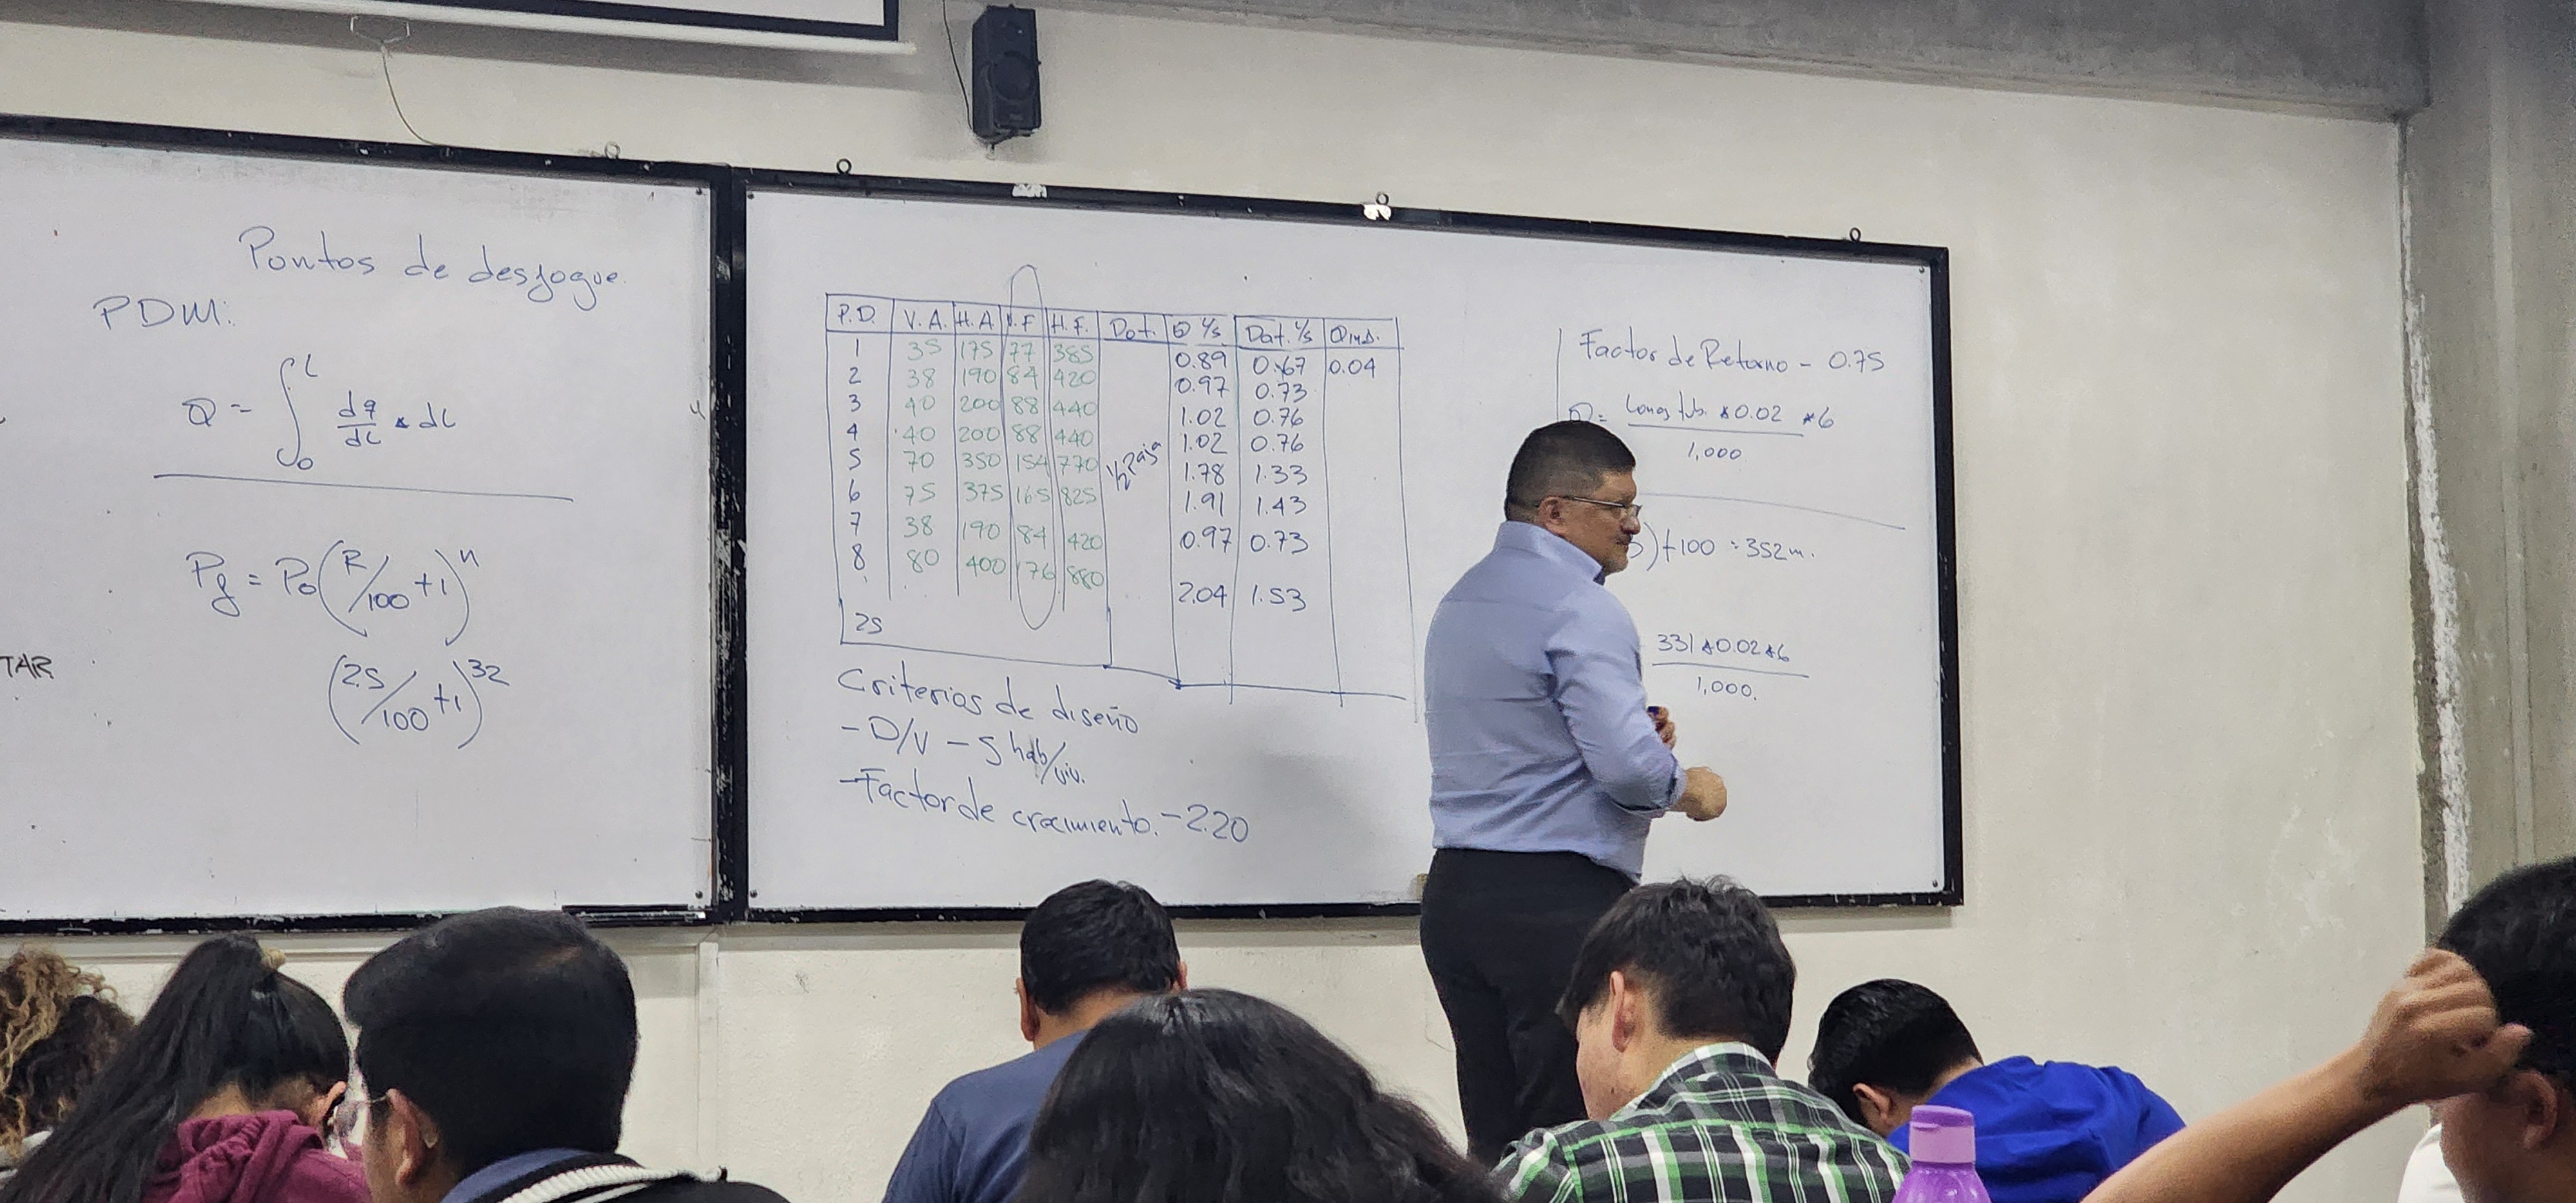 Puntos de desfogue.
PDM:
Q = ∫₀ᴸ dq/dL * dL
Pf = Po(R/100 +1)ⁿ
(2.5/100 +1)³²
TAR
P.D. V.A. H.A. V.F H.F. Dot. Q l/s Dot. l/s Qins.
1 35 175 77 385 0.89 0.67 0.04
2 38 190 84 420 0.97 0.73
3 40 200 88 440 1.02 0.76
4 40 200 88 440 1.02 0.76
5 70 350 154 770 1.78 1.33
6 75 375 165 825 1.91 1.43
7 38 190 84 420 0.97 0.73
8 80 400 176 880 2.04 1.53
25
Criterios de diseño
- D/V - 5 hab/viv.
- Factor de crecimiento. - 2.20
Factor de Retorno - 0.75
Q = Long tub. * 0.02 * 6
1,000
) + 100 = 352 m.
331 * 0.02 * 6
1,000.